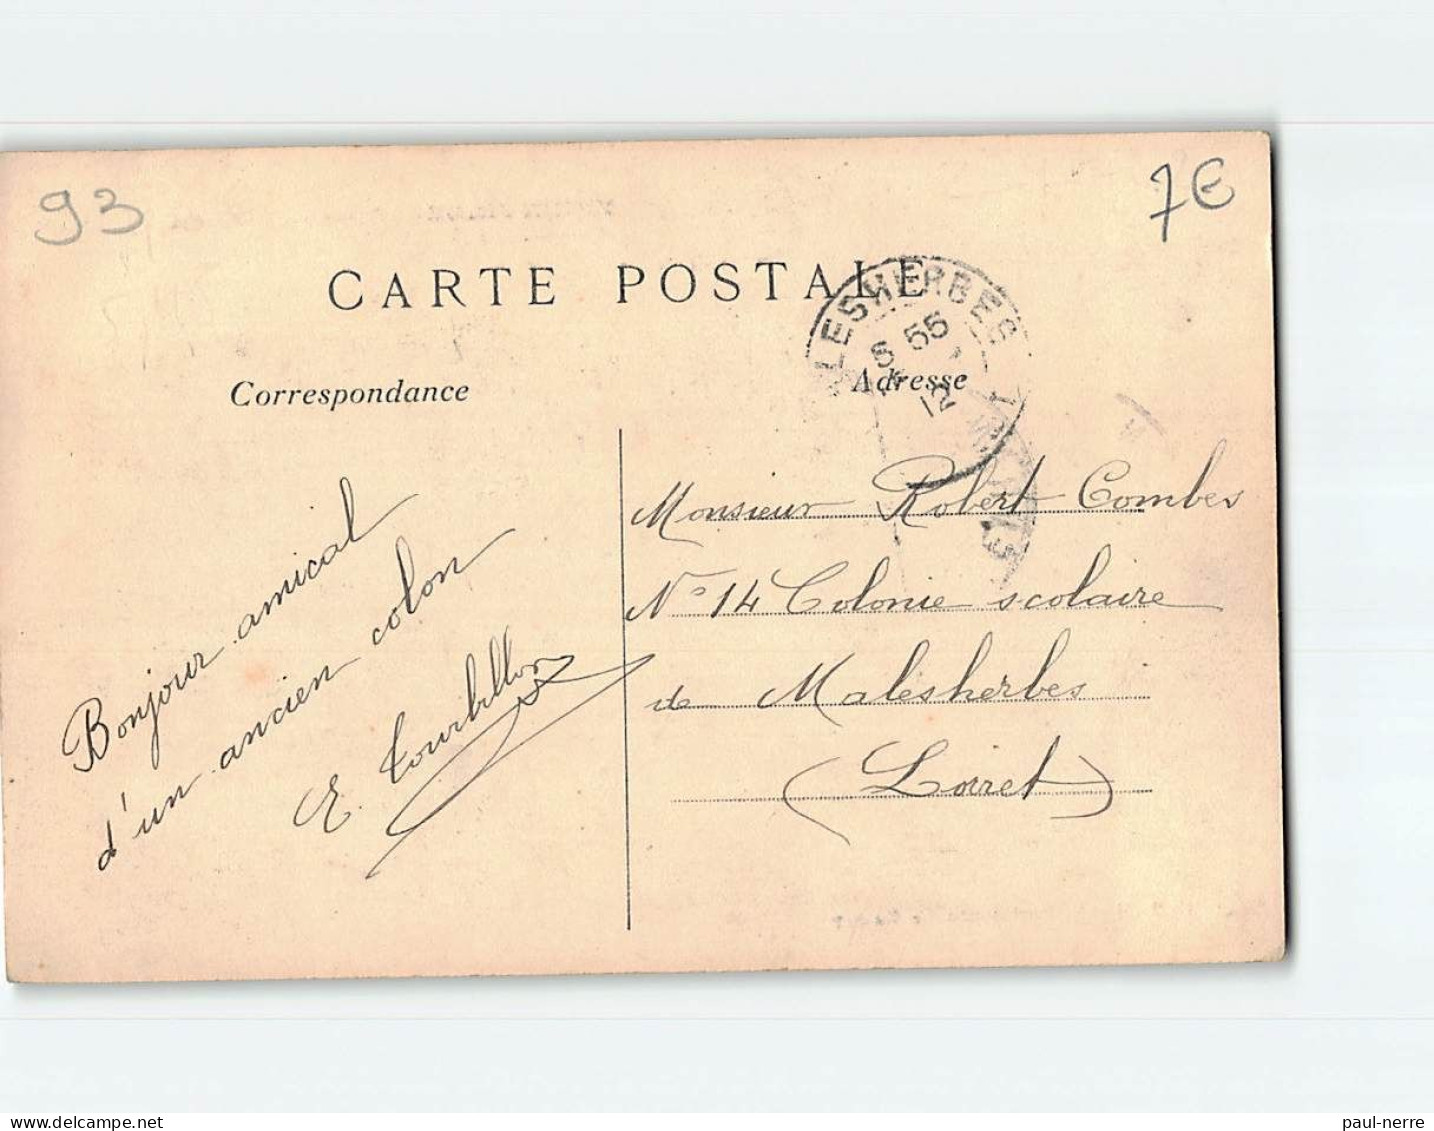 93
7€
CARTE POSTALE
LESHERBES
5 55
12
Correspondance
Adresse
Bonjour amical
d'un ancien colon
E. Tourbillon
Monsieur Robert Combes
N° 14 Colonie scolaire
de Malesherbes
(Loiret)
delcampe.net
paul-nerre